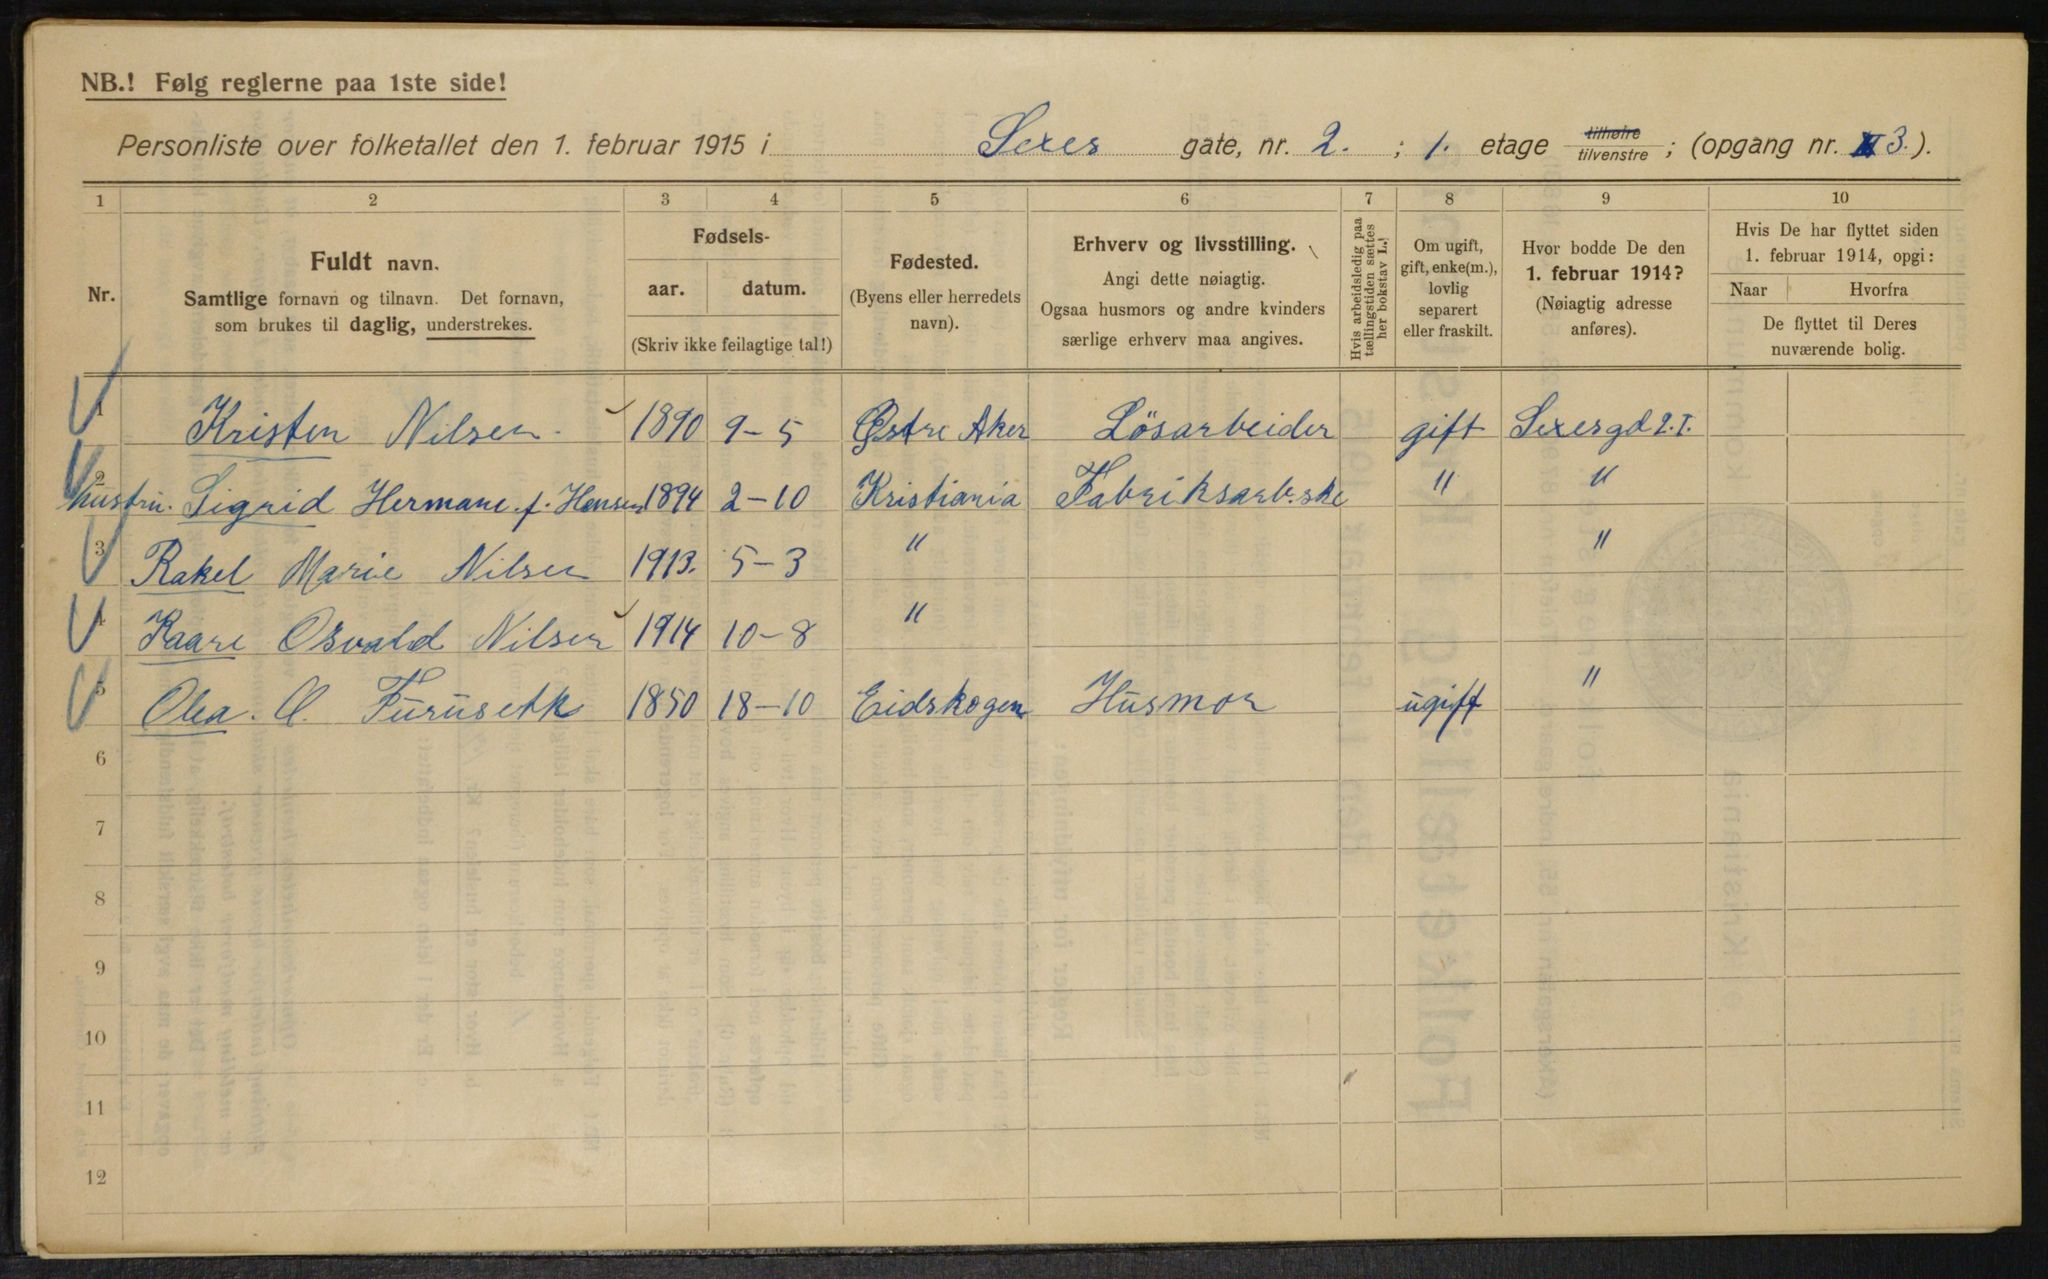 NB.! Følg reglerne paa 1ste side!
Personliste over folketallet den 1. februar 1915 i Sexes gate, nr. 2. ; 1. etage tilhøire tilvenstre ; (opgang nr. 3.).
1 2 3 4 5 6 7 8 9 10
Nr.
Fuldt navn.
Samtlige fornavn og tilnavn. Det fornavn,
som brukes til daglig, understrekes.
Fødsels-
aar. datum.
(Skriv ikke feilagtige tal!)
Fødested.
(Byens eller herredets
navn).
Erhverv og livsstilling.
Angi dette nøiagtig.
Ogsaa husmors og andre kvinders
særlige erhverv maa angives.
Hvis arbeidsledig paa
tællingstiden sættes
her bokstav L.!
Om ugift,
gift, enke(m.),
lovlig
separert
eller fraskilt.
Hvor bodde De den
1. februar 1914?
(Nøiagtig adresse
anføres).
Hvis De har flyttet siden
1. februar 1914, opgi:
Naar Hvorfra
De flyttet til Deres
nuværende bolig.
1 Kristen Nilsen. 1890 9-5 Østre Aker Lösarbeider gift Sexesgd 2. I.
2 hustru. Sigrid Hermane. f. Hansen 1894 2-10 Kristiania Fabriksarb.ske " "
3 Rakel Marie Nilsen 1913. 5-3 " "
4 Kaare Osvald Nilsen 1914 10-8 "
5 Olea. O. Furuseth 1850 18-10 Eidskogen Husmor ugift "
6
7
8
9
10
11
12